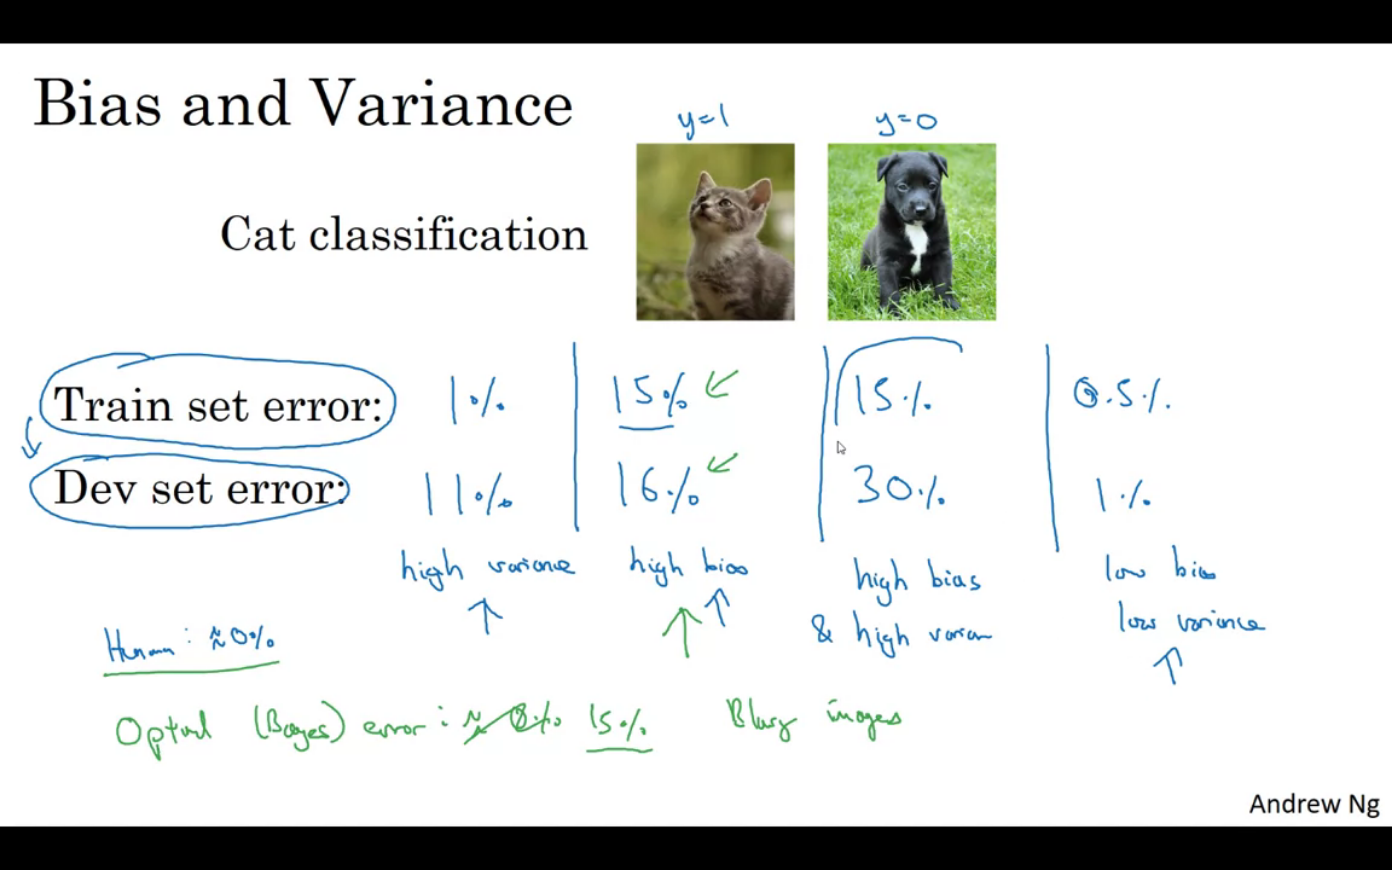 Bias and Variance
y=1 y=0
Cat classification
Train set error: 1% 15% 15% 0.5%
Dev set error: 11% 16% 30% 1%
high variance high bias high bias low bias
& high varian low variance
Human: ≈0%
Optml (Bayes) error: ≈0% 15% Blurry images
Andrew Ng